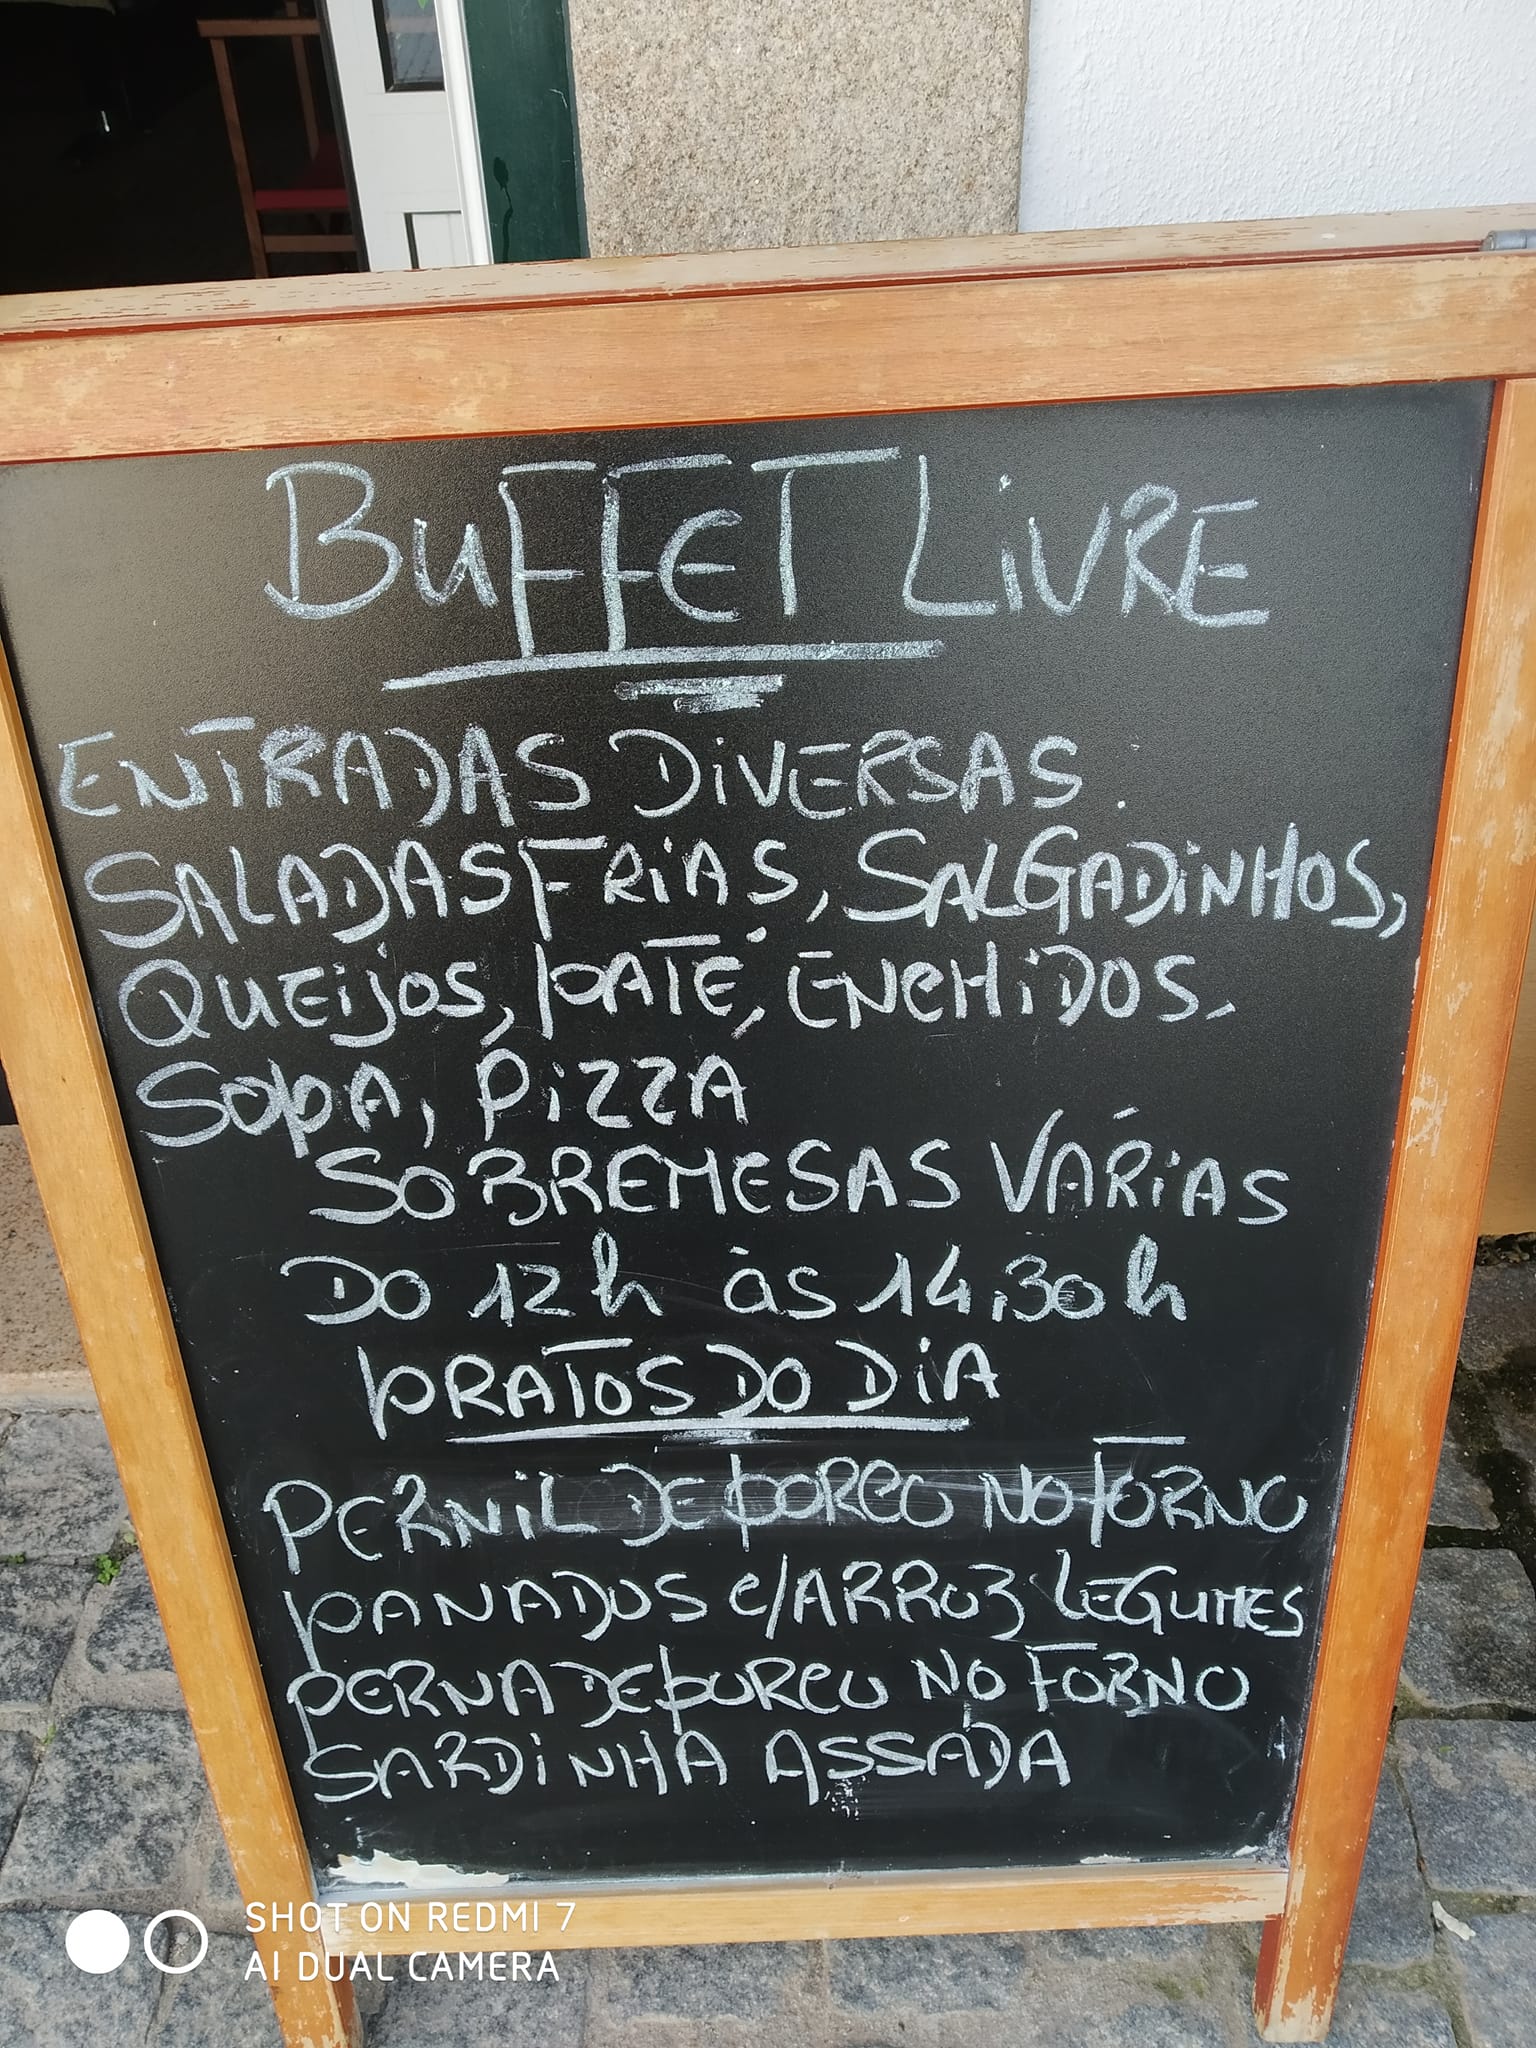 BUFFET LIVRE
ENTRADAS DIVERSAS.
SALADAS FRIAS, SALGADINHOS,
QUEIJOS, PATÉ, ENCHIDOS,
SOPA, PIZZA
SOBREMESAS VÁRIAS
DO 12h às 14,30h
PRATOS DO DIA
PERNIL DE PORCO NO FORNO
PANADOS C/ARROZ LEGUMES
PERNA DE PORCO NO FORNO
SARDINHA ASSADA
SHOT ON REDMI 7
AI DUAL CAMERA